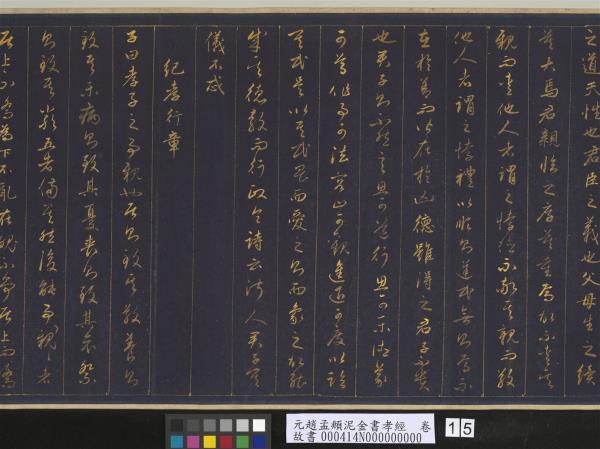 之道天性也君臣之義也父母生之續
莫大焉君親臨之厚莫重焉故不愛其
親而愛他人者謂之悖德不敬其親而敬
他人者謂之悖禮以順則逆民無則焉不
在於善而皆在於凶德雖得之君子不貴
也君子則不然言思可道行思可樂德義
可尊作事可法容止可觀進退可度以臨
其民是以其民畏而愛之則而象之故能
成其德教而行政令詩云淑人君子其
儀不忒
紀孝行章
子曰孝子之事親也居則致其敬養則
致其樂病則致其憂喪則致其哀祭
則致其嚴五者備矣然後能事親者
居上不驕為下不亂在醜不爭居上而驕
元趙孟頫泥金書孝經 卷
故書000414N000000000
15